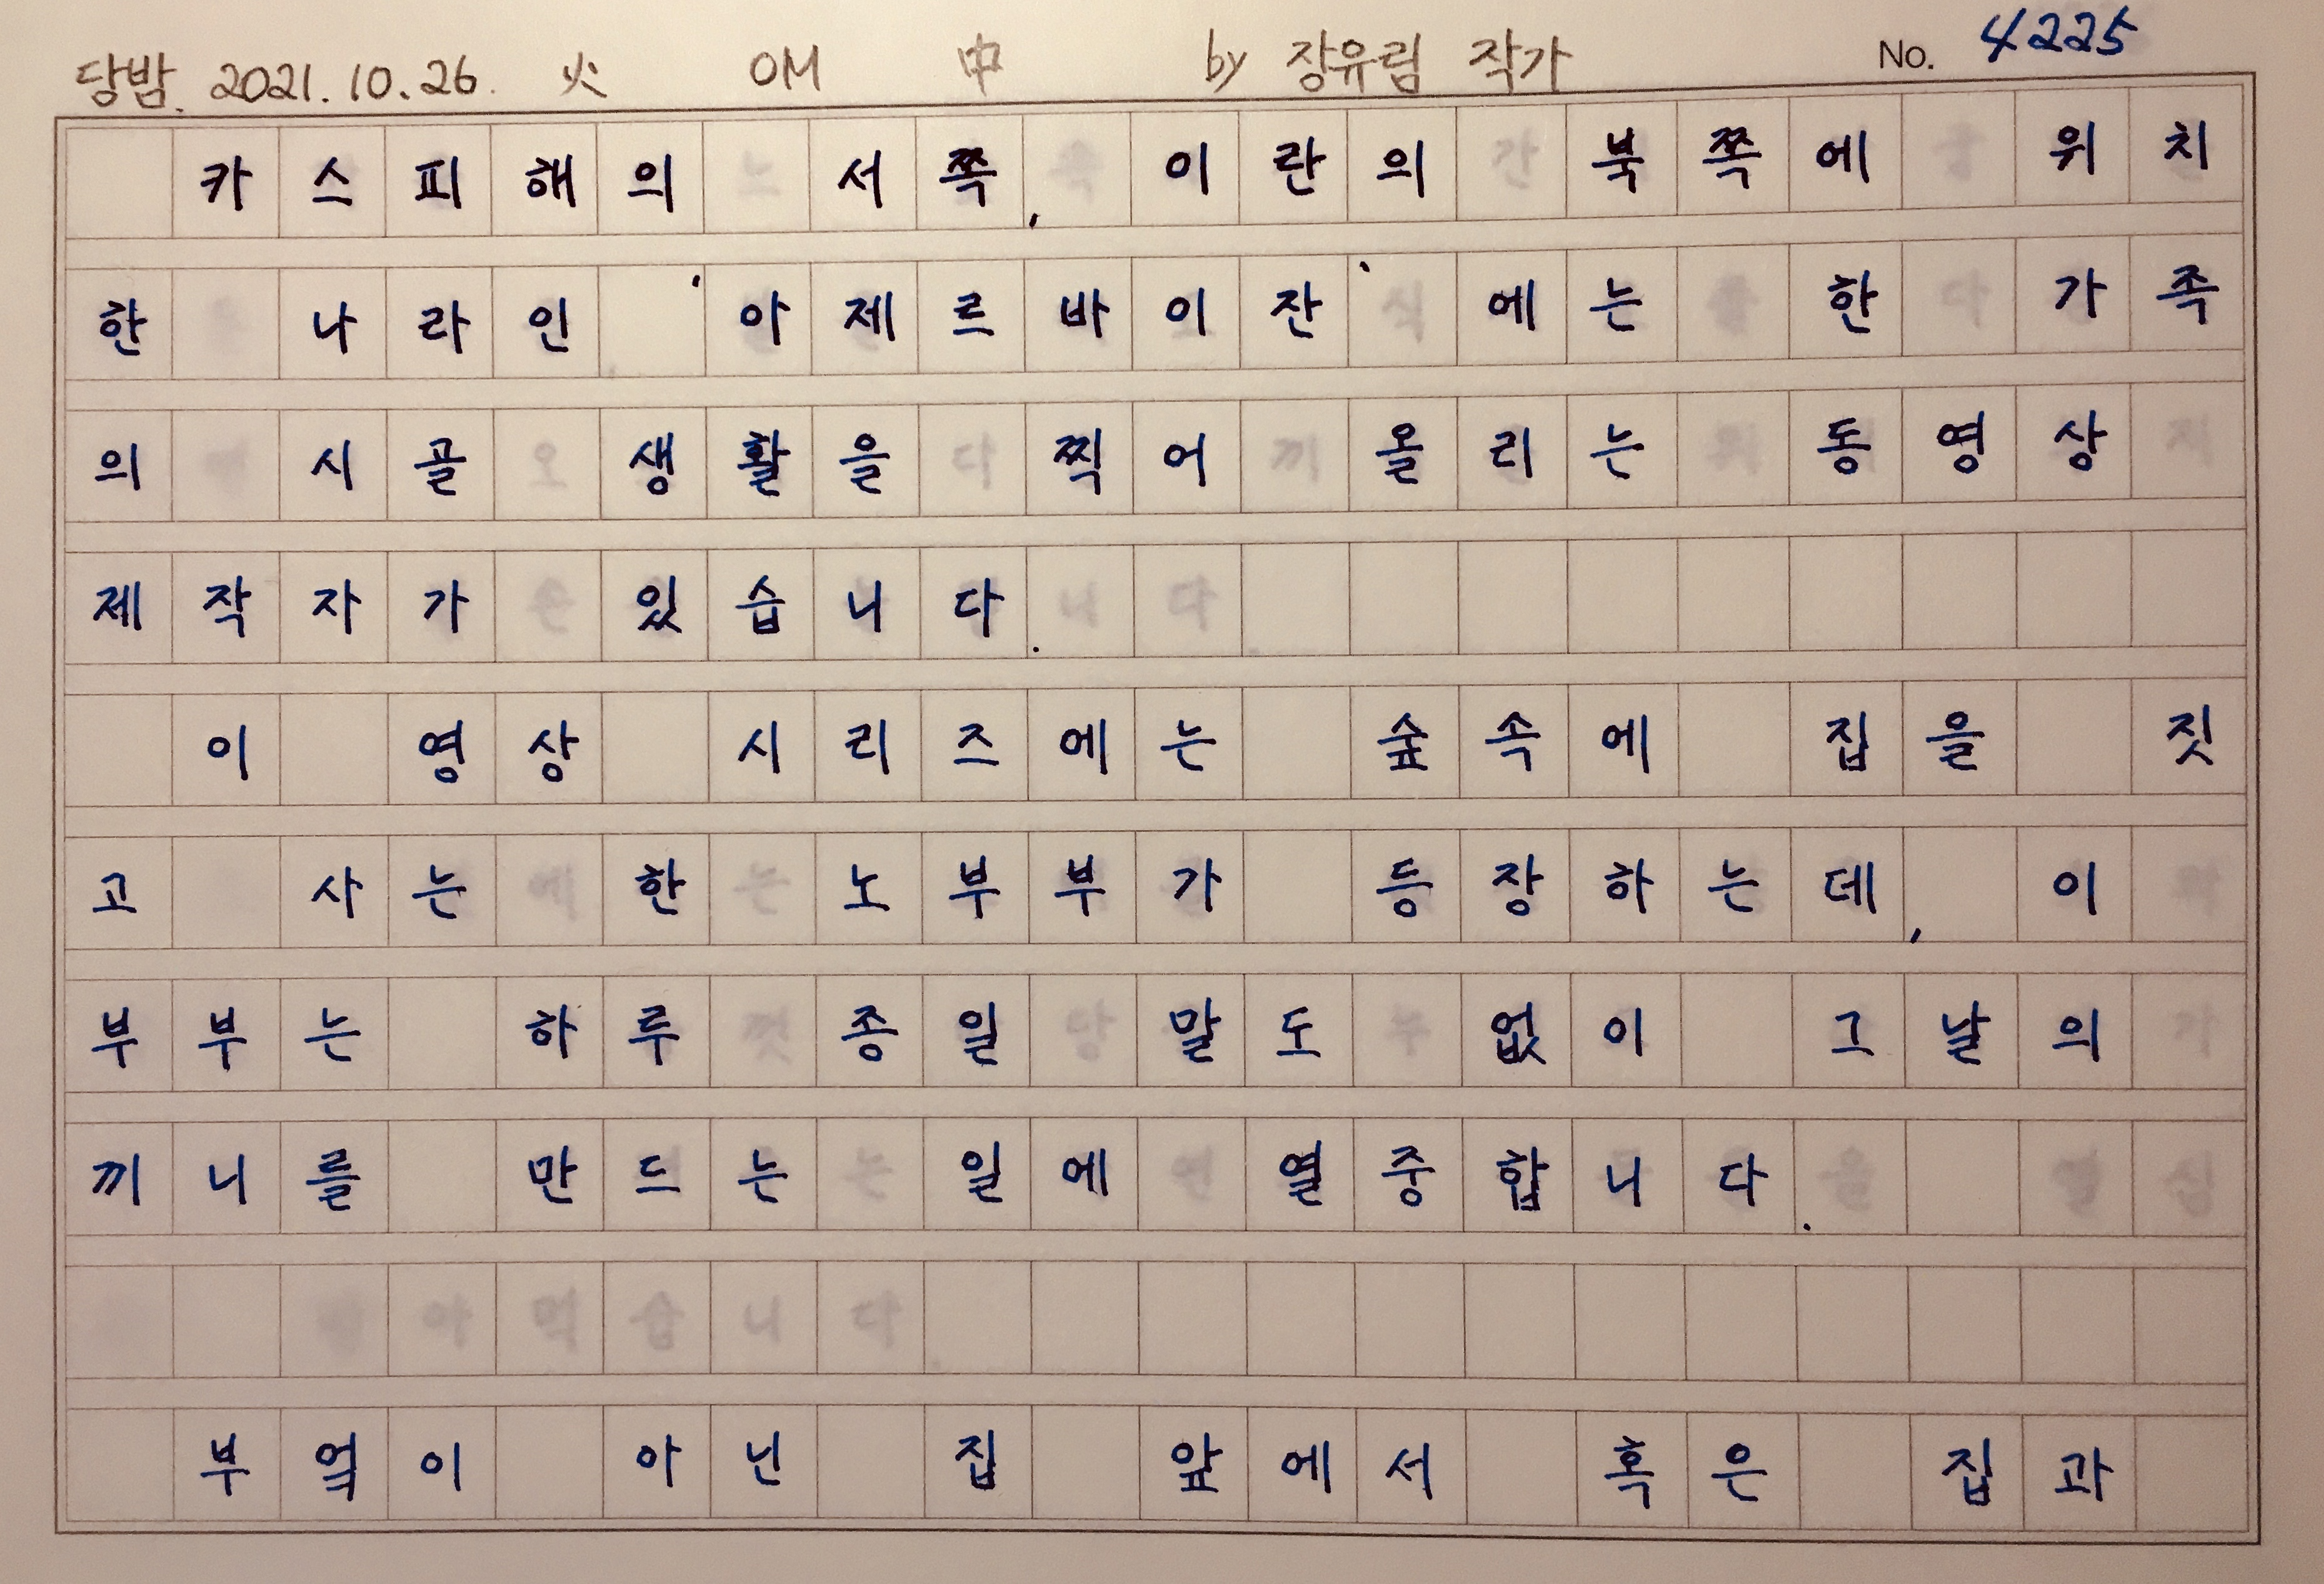 당밤. 2021.10.26. 火 OM 中 by 장유림 작가 No. 4225
카스피해의 서쪽, 이란의 북쪽에 위치
한 나라인 '아제르바이잔'에는 한 가족
의 시골 생활을 찍어 올리는 동영상
제작자가 있습니다.
이 영상 시리즈에는 숲속에 집을 짓
고 사는 한 노부부가 등장하는데, 이
부부는 하루 종일 말도 없이 그날의
끼니를 만드는 일에 열중합니다.
부엌이 아닌 집 앞에서 혹은 집과